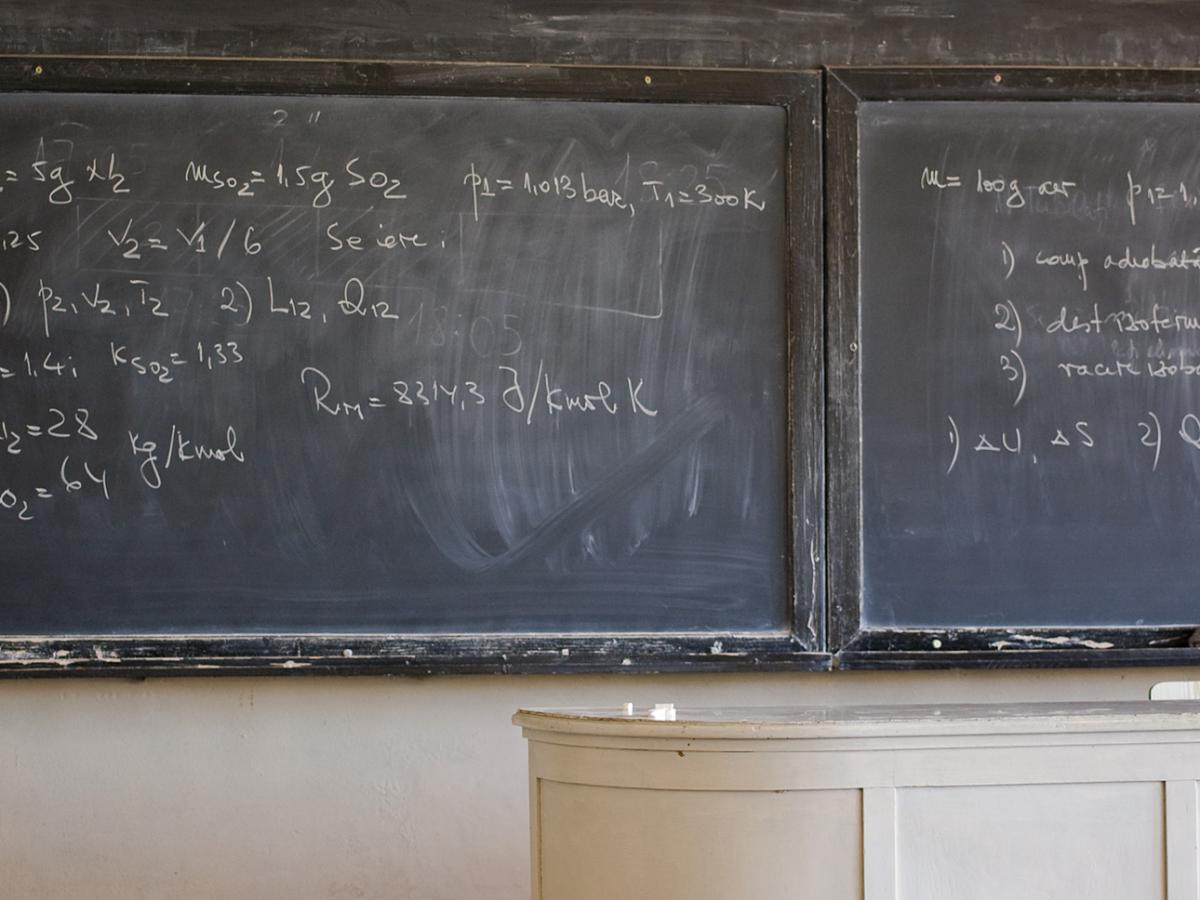 = 5g N2 mSO2 = 1,5g SO2 p1 = 1,013 bar, T1 = 300K
,25 V2 = V1/6 Se cere:
) p2, V2, T2 2) L12, Q12
= 1,4; KSO2 = 1,33
RM = 8314,3 J/kmol K
N2 = 28
kg/kmol
O2 = 64
18:05
m = 100g aer p1 = 1,
1) comp adiabată
2) dest izoterm
3) racire izoba
1) ΔU, ΔS 2) Q